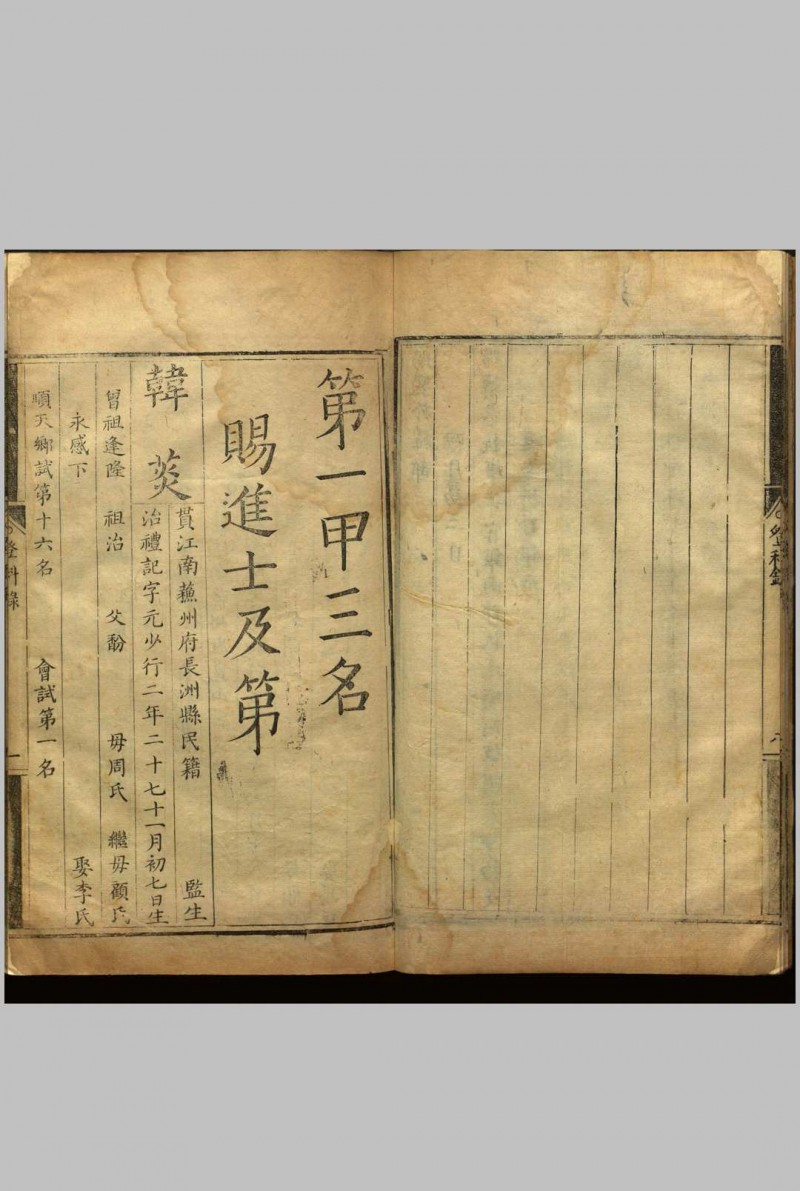 登科錄
第一甲三名
賜進士及第
韓菼
貫江南蘓州府長洲縣民籍 監生
治禮記字元少行二年二十七十一月初七日生
曾祖逢隆 祖治 父馚 母周氏 繼母顧氏
永感下 娶李氏
順天鄉試第十六名 會試第一名
登科錄
一